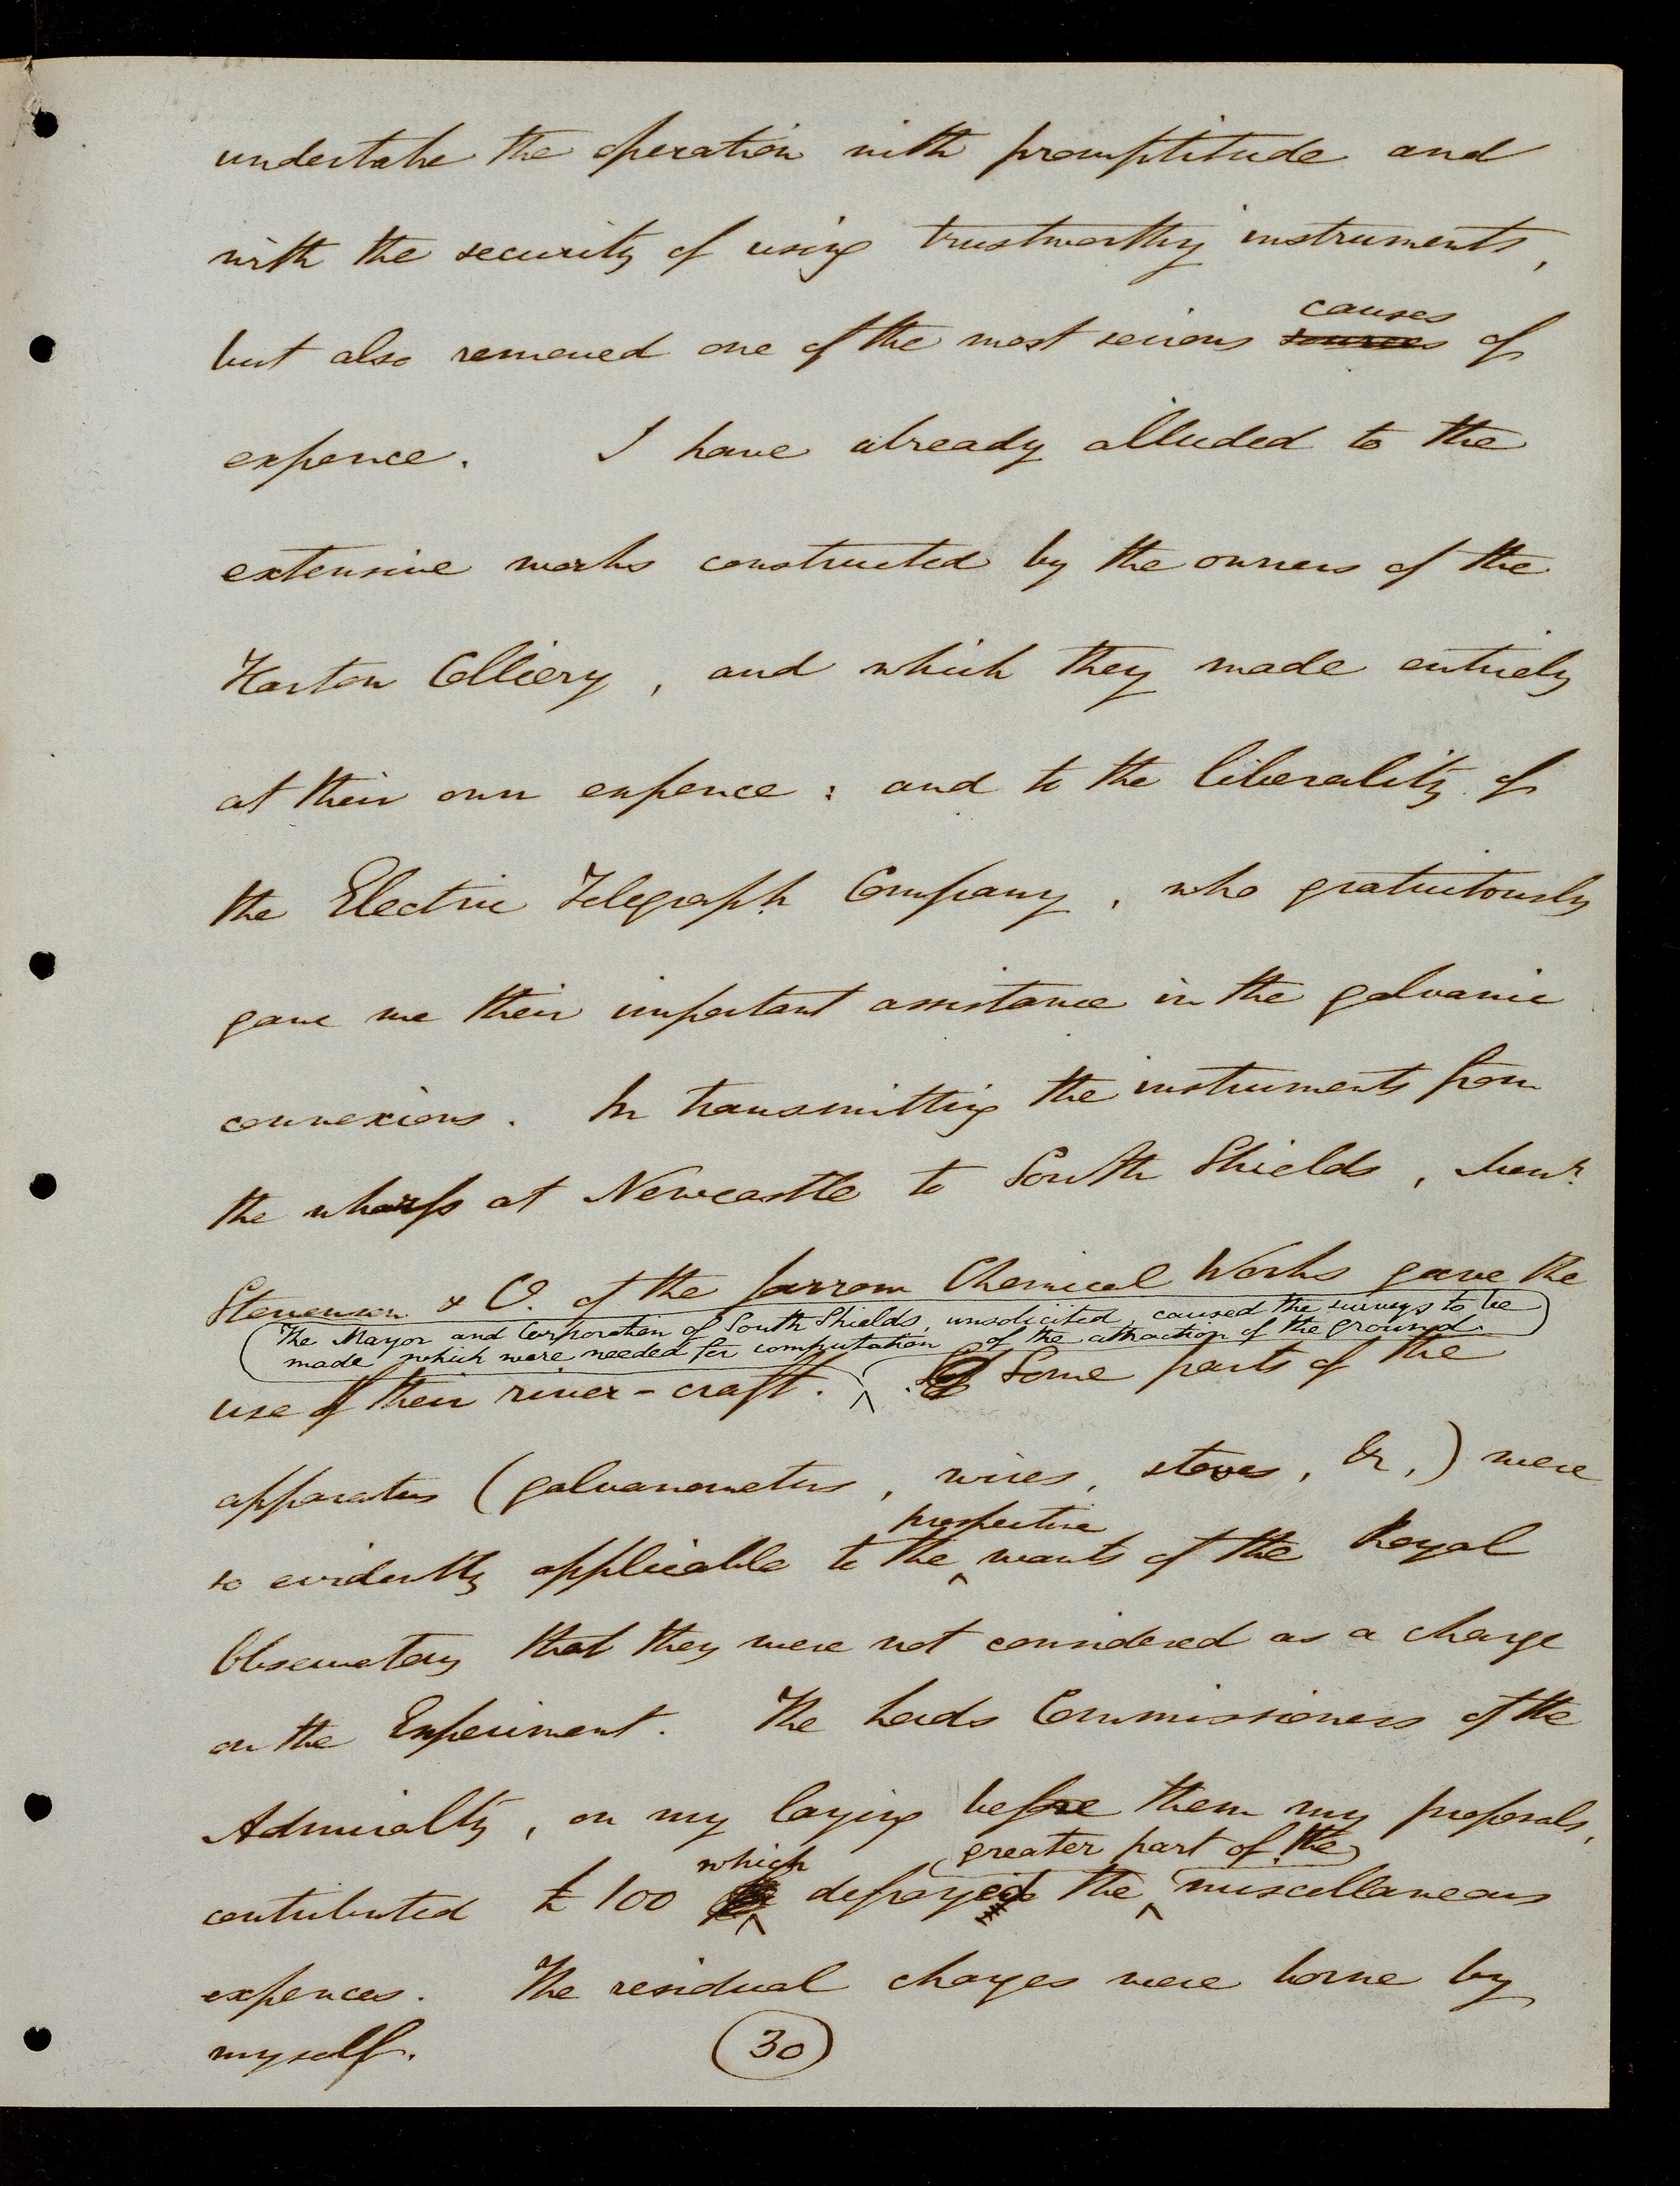 undertake the operation with promptitude and
with the security of using trustworthy instruments,
but also removed one of the most serious
causes
sources of
expence. I have already alluded to the
extensive works constructed by the owners of the
Harton Colliery, and which they made entirely
at their own expence: and to the liberality of
the Electric Telegraph Company, who gratuitously
gave me their important assistance in the galvanic
connexions. In transmitting the instruments from
the wharfs at Newcastle to South Shields, Messrs.
Stevenson & Co. of the Jarrow Chemical Works gave the
The Mayor and Corporation of South Shields, unsolicited, caused the surveys to be
made which were needed for computation of the attraction of the ground.
use of their river-craft. Some parts of the
apparatus (galvanometers, wires, stoves, &c,) were
prospective
so evidently applicable to the wants of the Royal
Observatory that they were not considered as a charge
on the Experiment. The Lords Commissioners of the
Admiralty, on my laying before them my proposals,
which greater part of the
contributed £100 defrayed the miscellaneous
expences. The residual charges were borne by
myself.
30